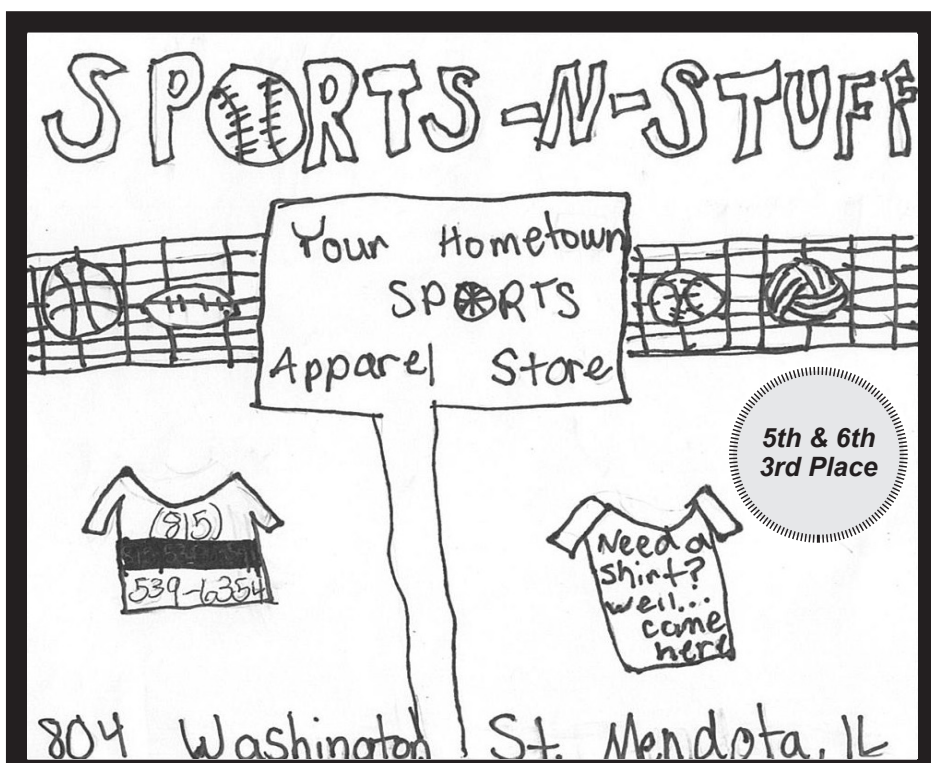 SPORTS-N-STUFF
Your Hometown
SPORTS
Apparel Store
5th & 6th
3rd Place
(815)
539-6354
Need a
shirt?
well...
come
here
804 Washington St. Mendota, IL